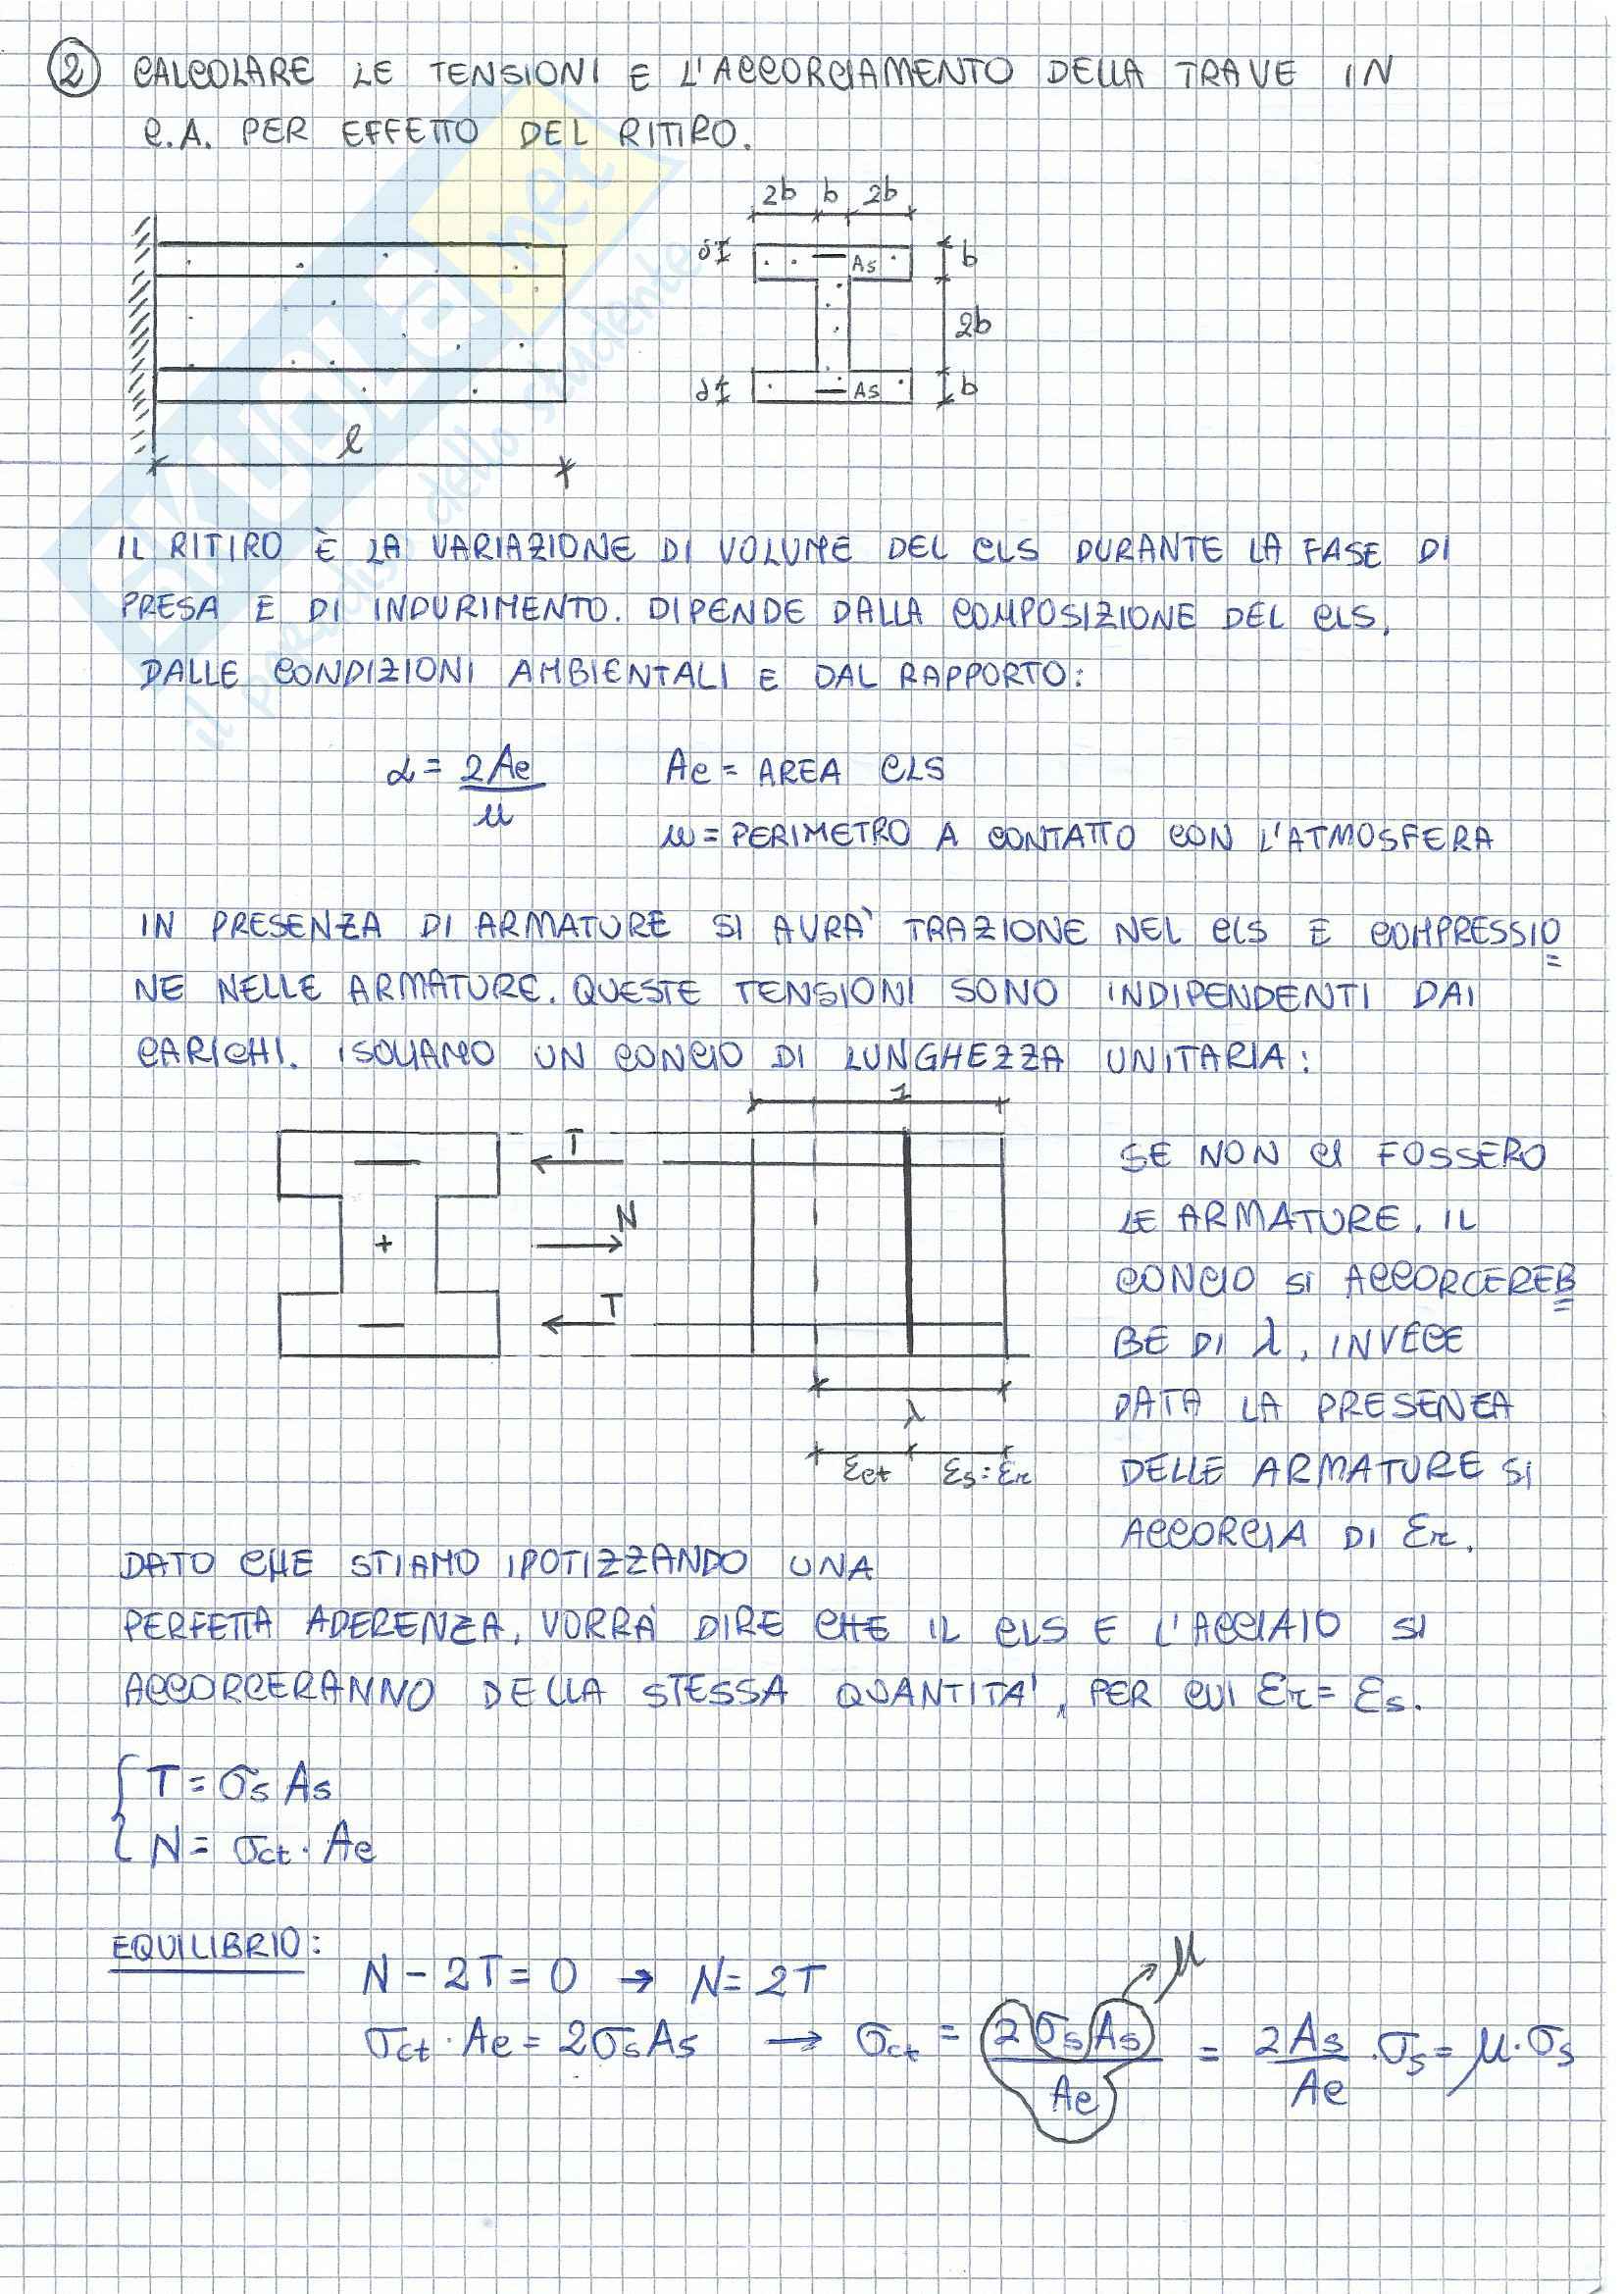 ② CALCOLARE LE TENSIONI E L'ACCORCIAMENTO DELLA TRAVE IN
C.A. PER EFFETTO DEL RITIRO.
2b b 2b
δ As b
2b
d As b
l
SKUOLA.net
il paradiso dello studente
IL RITIRO È LA VARIAZIONE DI VOLUME DEL CLS DURANTE LA FASE DI
PRESA E DI INDURIMENTO. DIPENDE DALLA COMPOSIZIONE DEL CLS,
DALLE CONDIZIONI AMBIENTALI E DAL RAPPORTO:
α = 2Ac / u Ac = AREA CLS
u = PERIMETRO A CONTATTO CON L'ATMOSFERA
IN PRESENZA DI ARMATURE SI AVRA' TRAZIONE NEL CLS E COMPRESSIO=
NE NELLE ARMATURE. QUESTE TENSIONI SONO INDIPENDENTI DAI
CARICHI. ISOLIAMO UN CONCIO DI LUNGHEZZA UNITARIA:
1
T
N
+
T
λ
εct εs = εr
SE NON CI FOSSERO
LE ARMATURE, IL
CONCIO SI ACCORCEREB=
BE DI λ, INVECE
DATA LA PRESENZA
DELLE ARMATURE SI
ACCORCIA DI εr.
DATO CHE STIAMO IPOTIZZANDO UNA
PERFETTA ADERENZA, VORRA' DIRE CHE IL CLS E L'ACCIAIO SI
ACCORCERANNO DELLA STESSA QUANTITA', PER CUI εr = εs.
{ T = σs As
N = σct · Ac
EQUILIBRIO:
N - 2T = 0 → N = 2T
μ
σct · Ac = 2σs As → σct = 2σs As / Ac = 2As / Ac · σs = μ · σs